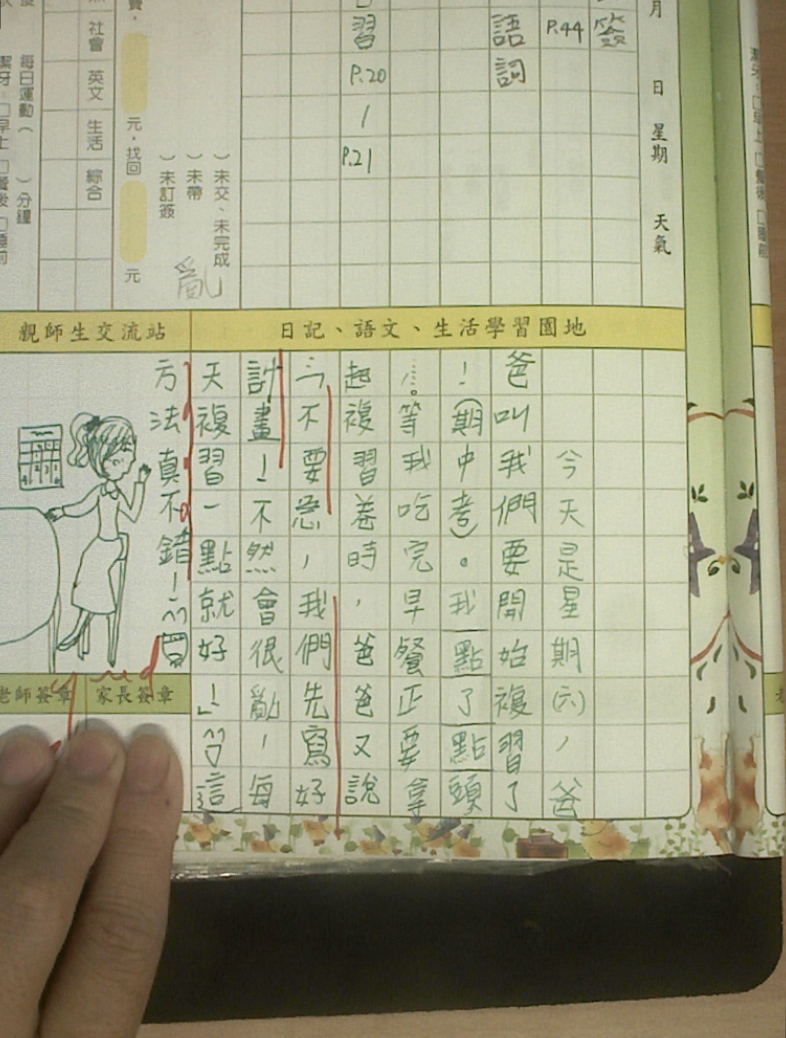 月 日 星期 天氣
簽
P.44
語詞
習 P.20 / P.21
)未交、未完成
)未帶
)未訂簽
亂
元，找回 元
社會 英文 生活 綜合
每日運動( )分鐘
日記、語文、生活學習園地
今天是星期(六)，爸
爸叫我們要開始複習了
！(期中考)。我點了點頭
……。等我吃完早餐正要拿
起複習卷時，爸爸又說
「不要急，我們先寫好
計畫！不然會很亂，每
天複習一點就好！」這
方法真不錯！
親師生交流站
家長簽章
老師簽章